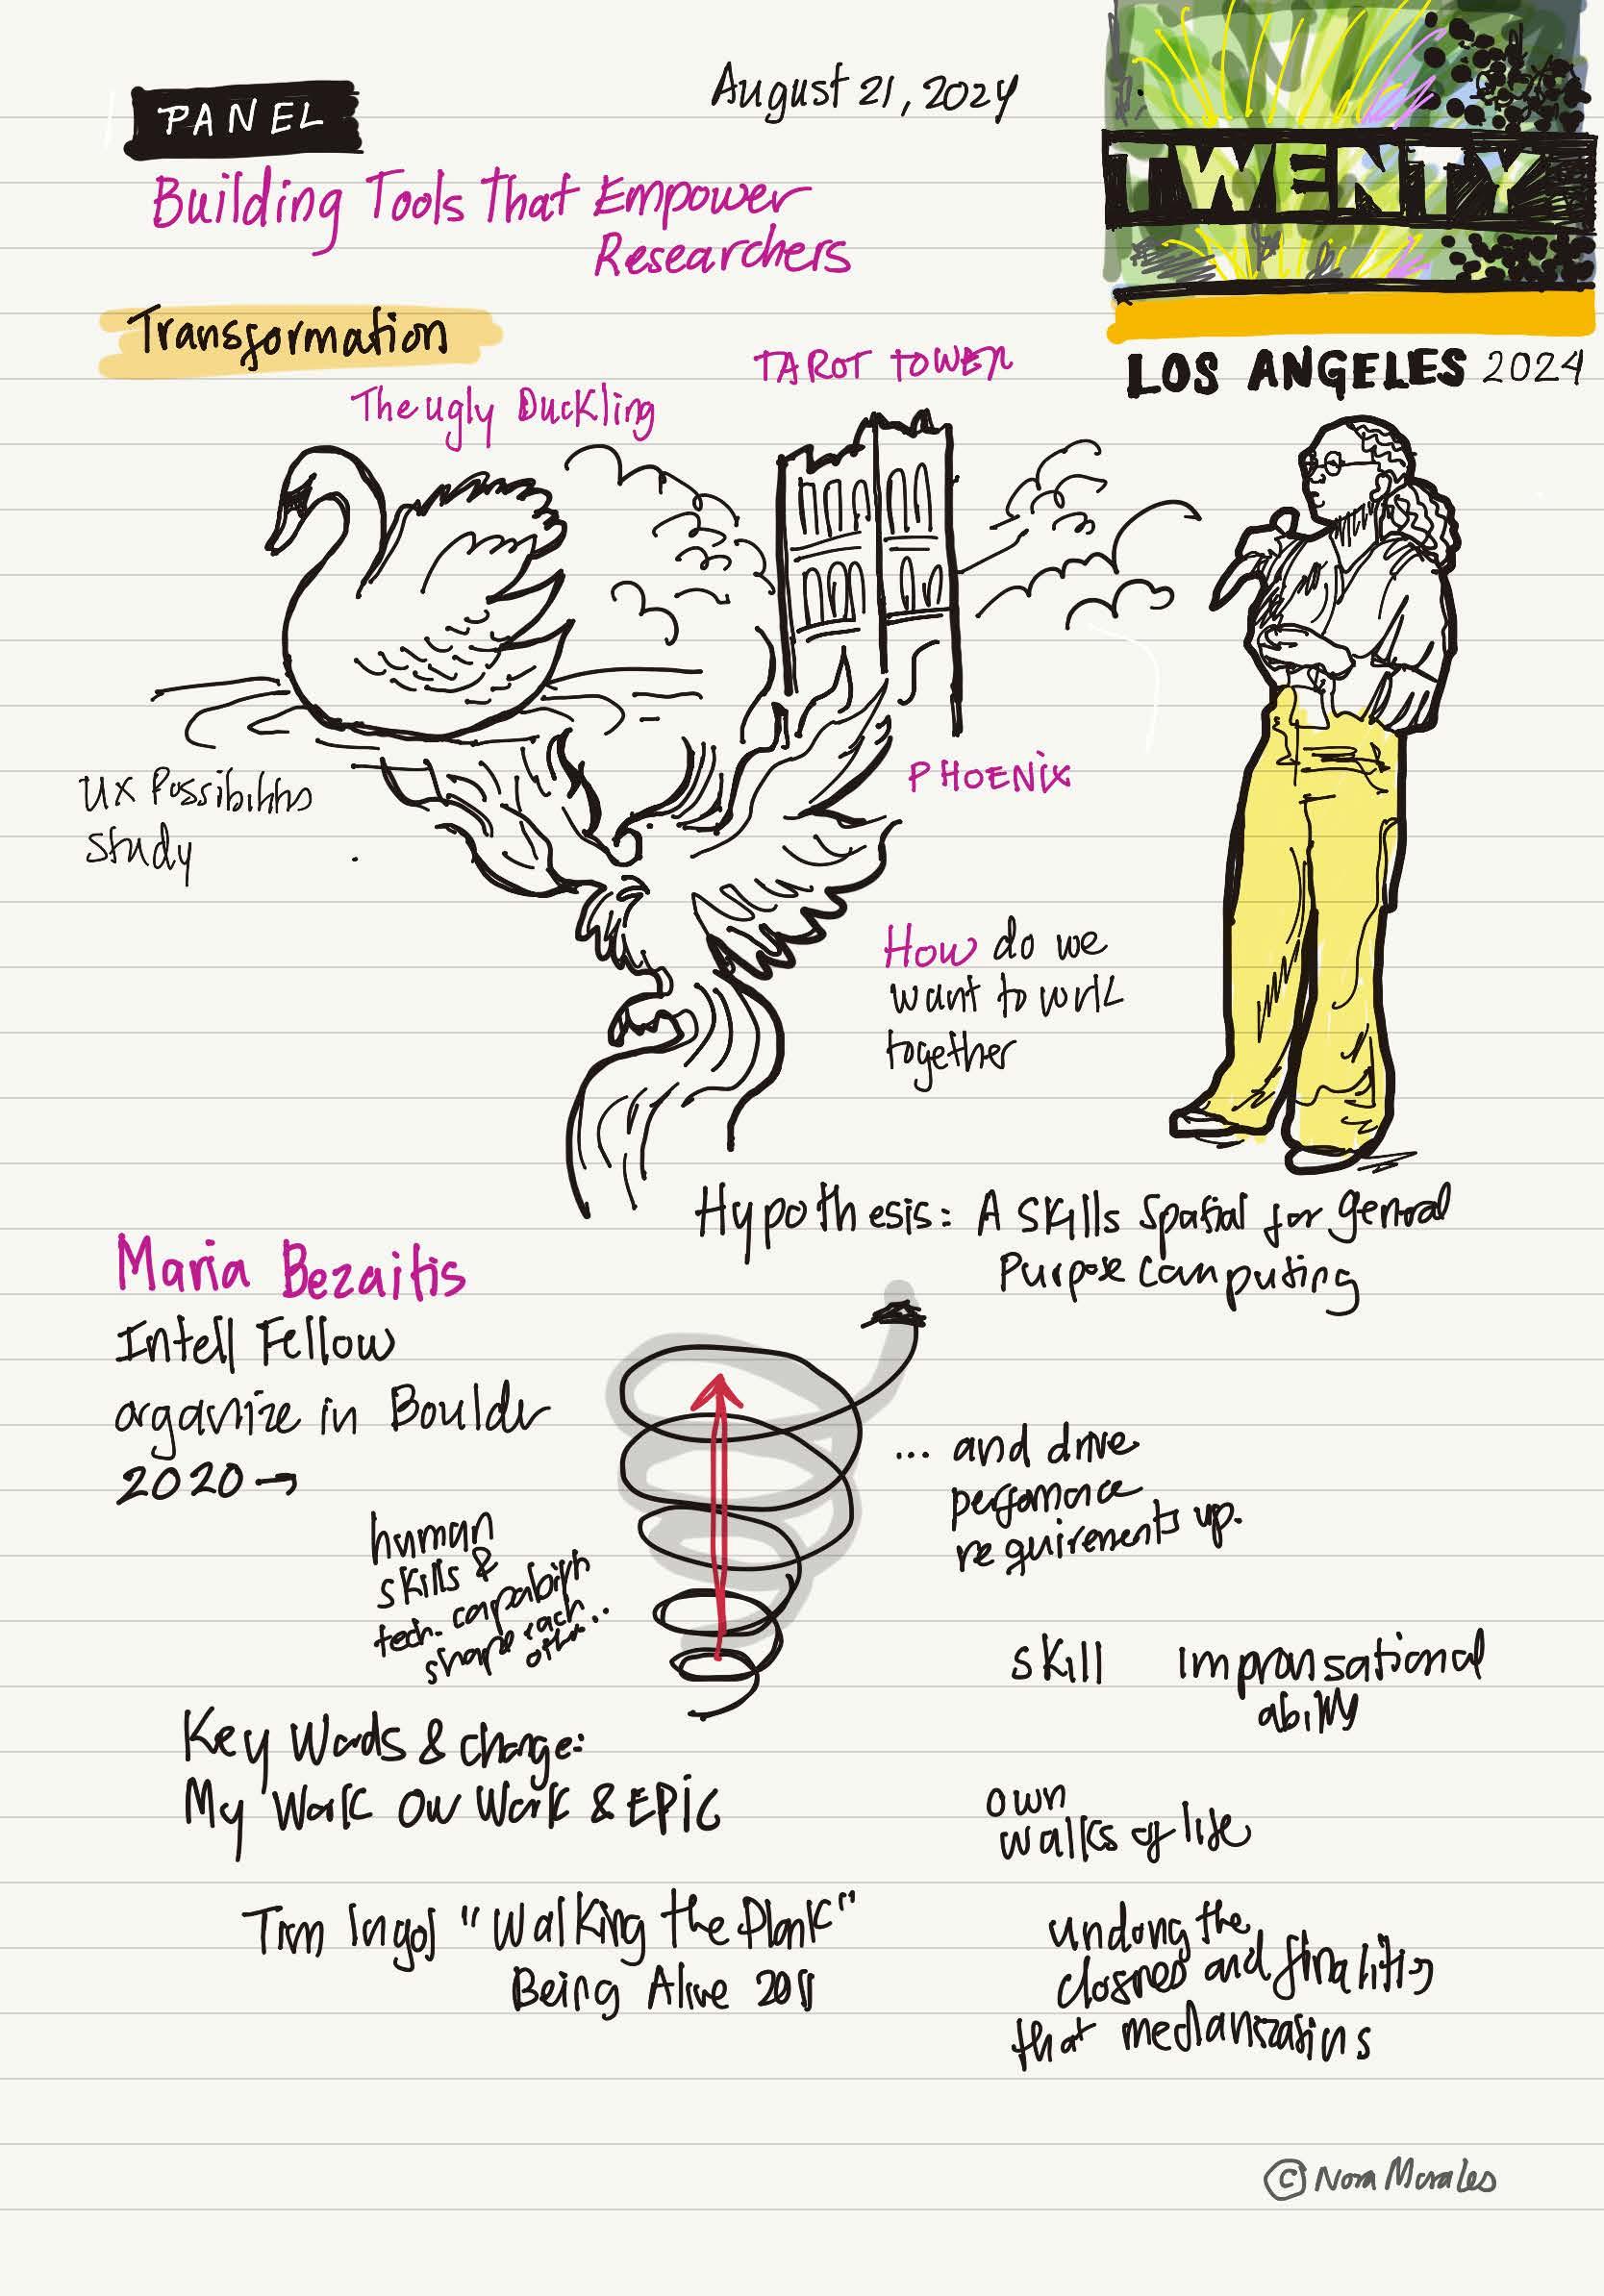 PANEL
August 21, 2024
Building Tools That Empower
Researchers
TWENTY
LOS ANGELES 2024
Transformation
The ugly Duckling
TAROT TOWER
UX Possibilities
Study
PHOENIX
How do we
want to work
together
Hypothesis: A skills spatial for general
Purpose Computing
Maria Bezaitis
Intell Fellow
organize in Boulder
2020→
human
skills &
tech. capability
shape each
other...
... and drive
performance
requirements up.
skill improvisational
ability
Key Words & change:
My Work Our Work & EPIC
own
walks of life
Tim Ingol "Walking the Plank"
Being Alive 2011
undoing the
closures and finalities
that mechanizations
© Nora Morales